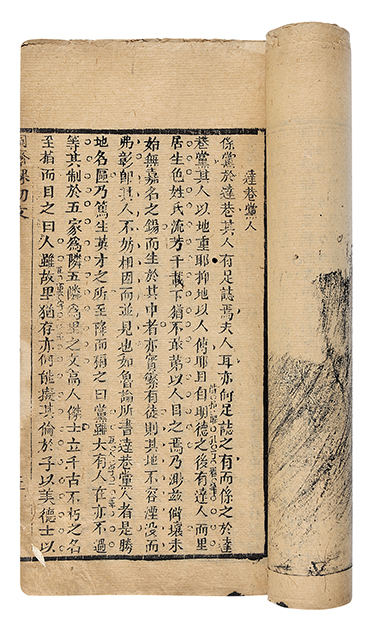 達巷黨人
係黨於達巷其人有足誌焉夫人耳亦何足誌之有而係之於達
巷黨其人以地重耶抑地以人傳耶且自明德之後有達人而里
居生色姓氏流芳千載下猶不敢第以人目之焉乃渺茲僻壤未
始無嘉名之錫而生於其中者亦實繁有徒則其地不容湮沒而
弗彰即其人不妨相因而並見也如魯論所書達巷黨人者是勝
地名區乃篤生英才之所至隆而稱之曰黨雖大有人在亦不過
等其制於五家為隣五隣為里之文高人傑士立千古不朽之名
至指而目之曰人雖故里猶存亦何能擬其倫於子以美德士以